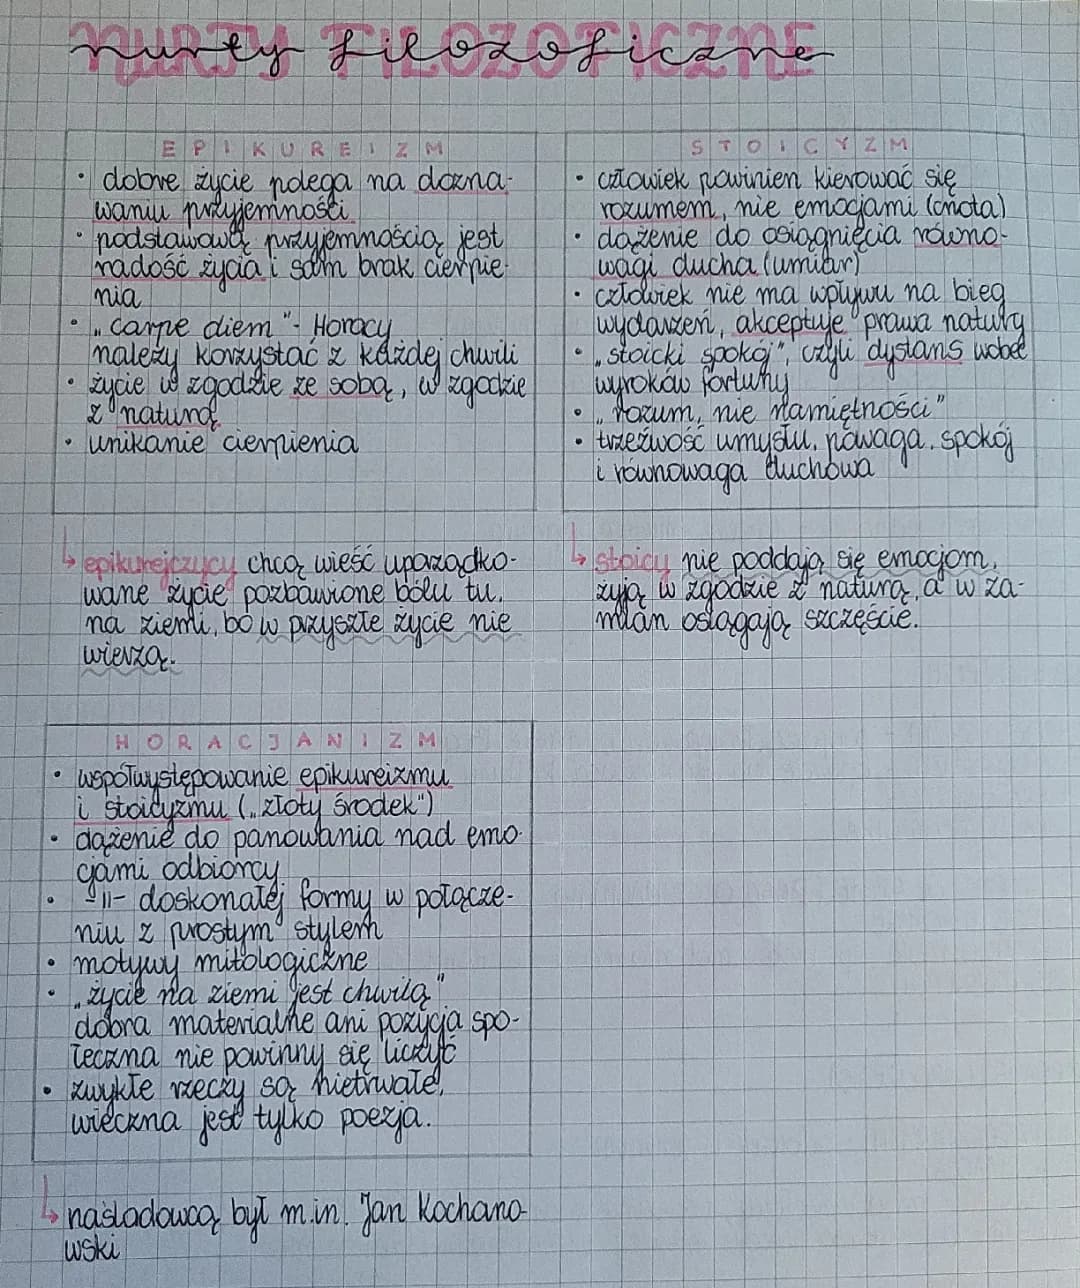 nurty filozoficzne
NURTY FILOZOFICZNE
EPIKUREIZM
• dobre życie polega na dozna-
waniu przyjemności
• podstawową przyjemnością jest
radość życia i sam brak cierpie-
nia
• „carpe diem" - Horacy
należy korzystać z każdej chwili
• życie w zgodzie ze sobą, w zgodzie
z naturą
• unikanie cierpienia
↳ epikurejczycy chcą wieść uporządko-
wane życie pozbawione bólu tu,
na ziemi, bo w przyszłe życie nie
wierzą.
STOICYZM
• człowiek powinien kierować się
rozumem, nie emocjami (cnota)
• dążenie do osiągnięcia równo-
wagi ducha (umiar)
• człowiek nie ma wpływu na bieg
wydarzeń, akceptuje prawa natury
• „stoicki spokój", czyli dystans wobec
wyroków fortuny
• „rozum, nie namiętności"
• trzeźwość umysłu, powaga, spokój
i równowaga duchowa
↳ stoicy nie poddają się emocjom,
żyją w zgodzie z naturą, a w za-
mian osiągają szczęście.
HORACJANIZM
• współwystępowanie epikureizmu
i stoicyzmu („złoty środek")
• dążenie do panowania nad emo-
cjami odbiorcy
• -||- doskonałej formy w połącze-
niu z prostym stylem
• motywy mitologiczne
• „życie na ziemi jest chwilą"
dobra materialne ani pozycja spo-
łeczna nie powinny się liczyć
• zwykłe rzeczy są nietrwałe,
wieczna jest tylko poezja.
↳ naśladowcą był m.in. Jan Kochano-
wski